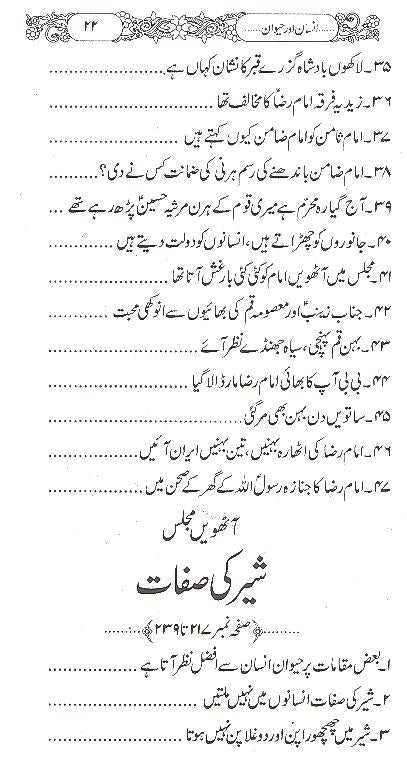 ۲۲ ......انسان اور حیوان......
۳۵۔لاکھوں بادشاہ گزرے قبر کا نشان کہاں ہے..................
۳۶۔زیدیہ فرقہ امام رضاؑ کا مخالف تھا..................
۳۷۔امام ثامن کو امام ضامن کیوں کہتے ہیں..................
۳۸۔امام ضامن باندھنے کی رسم ہرنی کی ضمانت کس نے دی؟............
۳۹۔آج گیارہ محرم ہے میری قوم کے ہرن مرثیہ حسینؑ پڑھ رہے تھے ...
۴۰۔جانوروں کو چھڑاتے ہیں، انسانوں کو دولت دیتے ہیں............
۴۱۔مجلس میں آٹھویں امام کو کئی کئی بار غش آتا تھا..................
۴۲۔جنابِ زینبؑ اور معصومہ قم کی بھائیوں سے انوکھی محبت............
۴۳۔بہن قم پہنچی، سیاہ جھنڈے نظر آئے..................
۴۴۔بی بی آپ کا بھائی امام رضا مار ڈالا گیا..................
۴۵۔ساتویں دن بہن بھی مر گئی..................
۴۶۔امام رضا کی اٹھارہ بہنیں، تین بہنیں ایران آئیں..................
۴۷۔امام رضا کا جنازہ رسولؐ اللہ کے گھر کے صحن میں..................
آٹھویں مجلس
شیر کی صفات
.........﴿صفحہ نمبر ۲۱۷ تا ۲۳۹﴾.........
۱۔بعض مقامات پر حیوان انسان سے افضل نظر آتا ہے..................
۲۔شیر کی صفات انسانوں میں نہیں ملتیں..................
۳۔شیر میں چھچھورا پن اور دوغلا پن نہیں ہوتا..................